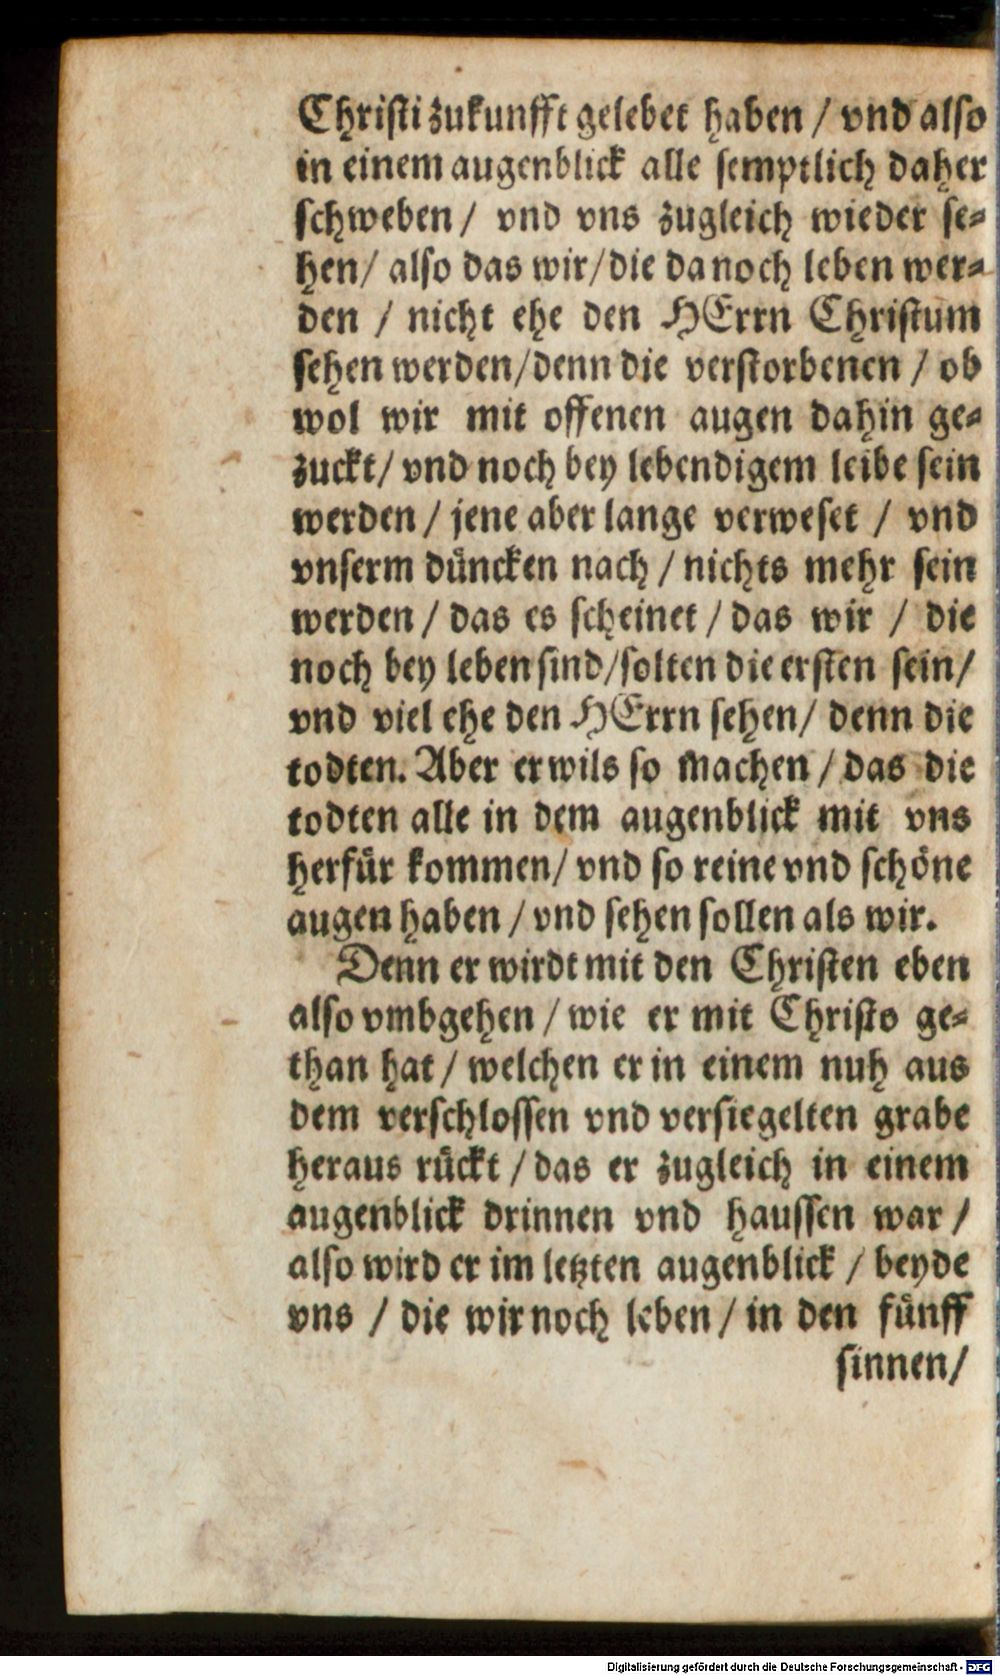 Christi zukunfft gelebet haben / vnd also
in einem augenblick alle semptlich daher
schweben / vnd vns zugleich wieder se⸗
hen / also das wir / die da noch leben wer⸗
den / nicht ehe den HErrn Christum
sehen werden / denn die verstorbenen / ob
wol wir mit offenen augen dahin ge⸗
zuckt / vnd noch bey lebendigem leibe sein
werden / jene aber lange verweset / vnd
vnserm düncken nach / nichts mehr sein
werden / das es scheinet / das wir / die
noch bey leben sind / solten die ersten sein /
vnd viel ehe den HErrn sehen / denn die
todten. Aber er wils so machen / das die
todten alle in dem augenblick mit vns
herfür kommen / vnd so reine vnd schöne
augen haben / vnd sehen sollen als wir.
Denn er wirdt mit den Christen eben
also vmbgehen / wie er mit Christo ge⸗
than hat / welchen er in einem nuh aus
dem verschlossen vnd versiegelten grabe
heraus rückt / das er zugleich in einem
augenblick drinnen vnd haussen war /
also wird er im letzten augenblick / beyde
vns / die wir noch leben / in den fünff
sinnen /
Digitalisierung gefördert durch die Deutsche Forschungsgemeinschaft - DFG